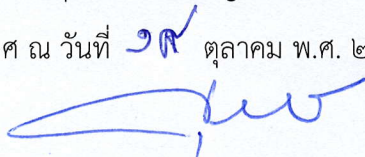 ศ ณ วันที่ ๑๙ ตุลาคม พ.ศ. ๒